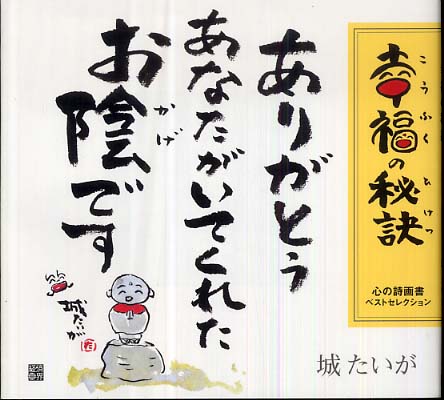 幸福の秘訣
こうふく ひけつ
心の詩画書
ベストセレクション
城 たいが
ありがとう
あなたがいてくれた
お陰です
かげ
城たいが